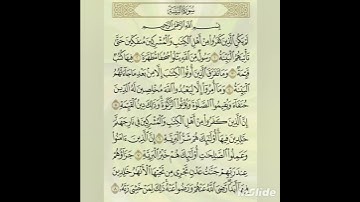 سورة البينة
بسم الله الرحمن الرحيم
لم يكن الذين كفروا من أهل الكتب والمشركين منفكين حتى
تأتيهم البينة ١ رسول من الله يتلوا صحفا مطهرة ٢ فيها كتب
قيمة ٣ وما تفرق الذين أوتوا الكتب إلا من بعد ما جاءتهم
البينة ٤ وما أمروا إلا ليعبدوا الله مخلصين له الدين
حنفاء ويقيموا الصلوة ويؤتوا الزكوة وذلك دين القيمة ٥
إن الذين كفروا من أهل الكتب والمشركين في نار جهنم
خلدين فيها أولئك هم شر البرية ٦ إن الذين ءامنوا
وعملوا الصلحت أولئك هم خير البرية ٧ جزاؤهم
عند ربهم جنت عدن تجري من تحتها الأنهر خلدين
فيها أبدا رضي الله عنهم ورضوا عنه ذلك لمن خشي ربه ٨